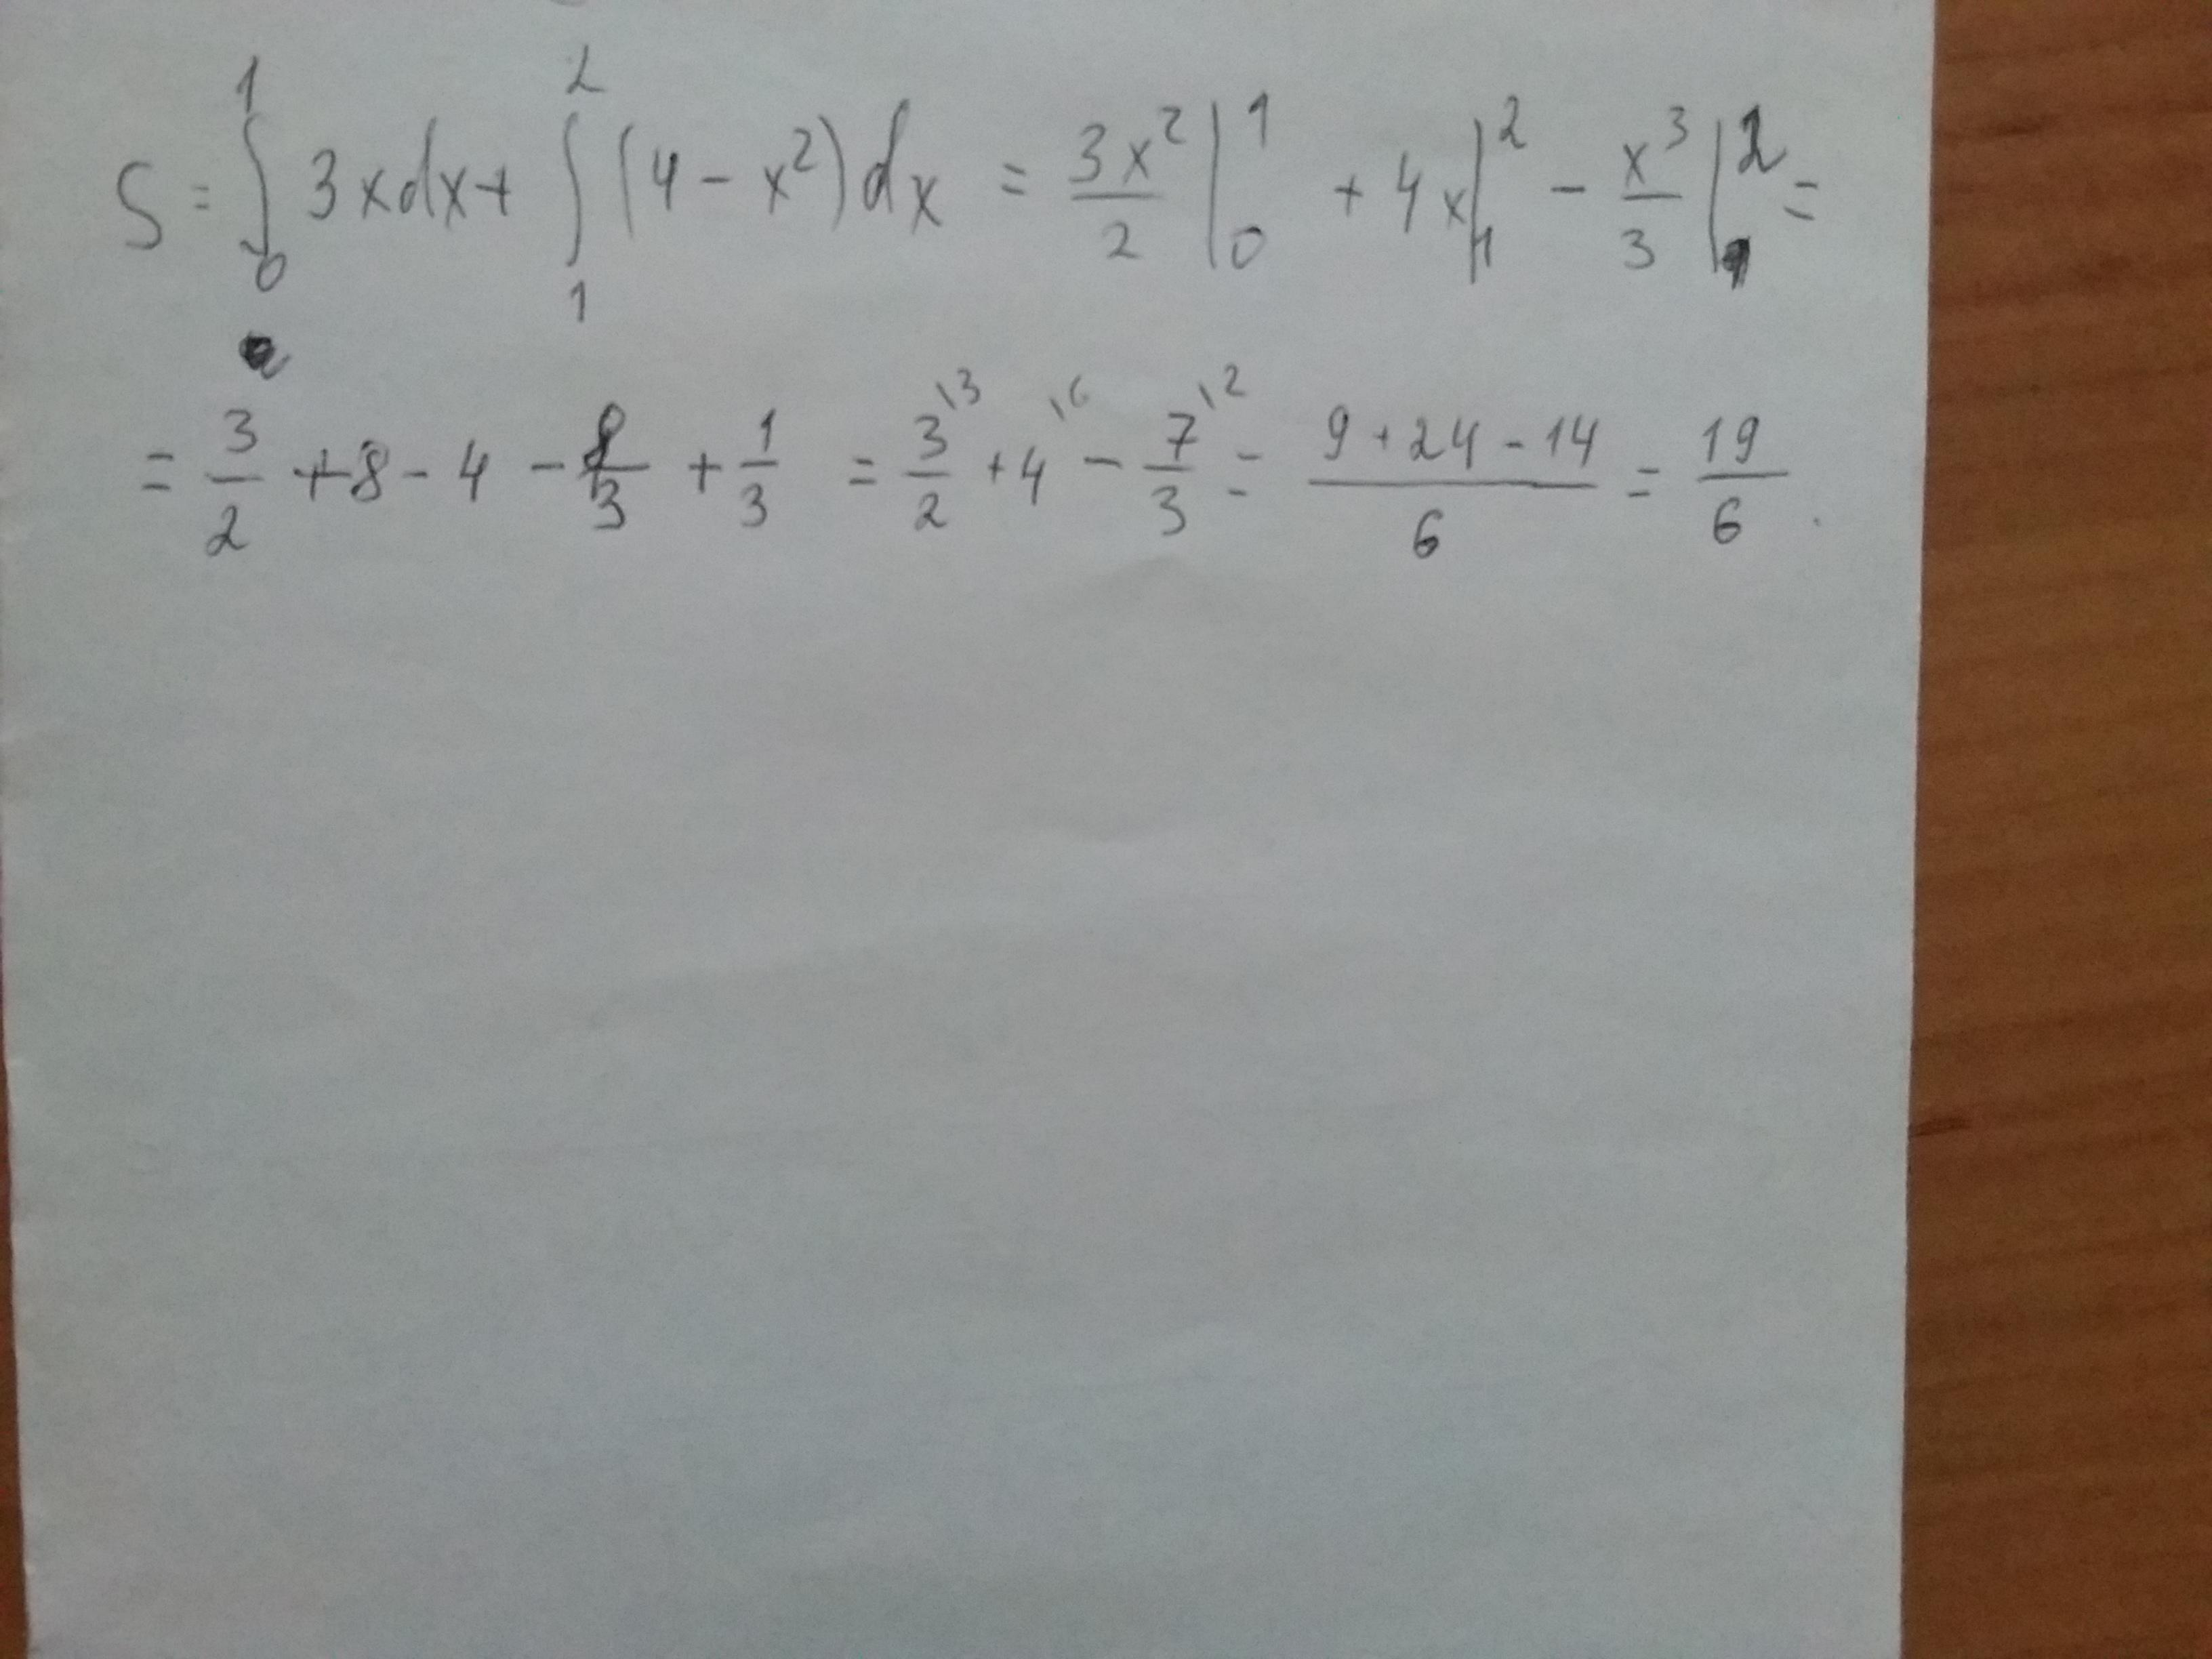 S = ∫₀¹ 3xdx + ∫₁² (4 - x²)dx = 3x²/2 |₀¹ + 4x |₁² - x³/3 |₁² =
= 3/2 + 8 - 4 - 8/3 + 1/3 = 3/2^\3 + 4^\6 - 7/3^\2 = (9 + 24 - 14)/6 = 19/6.